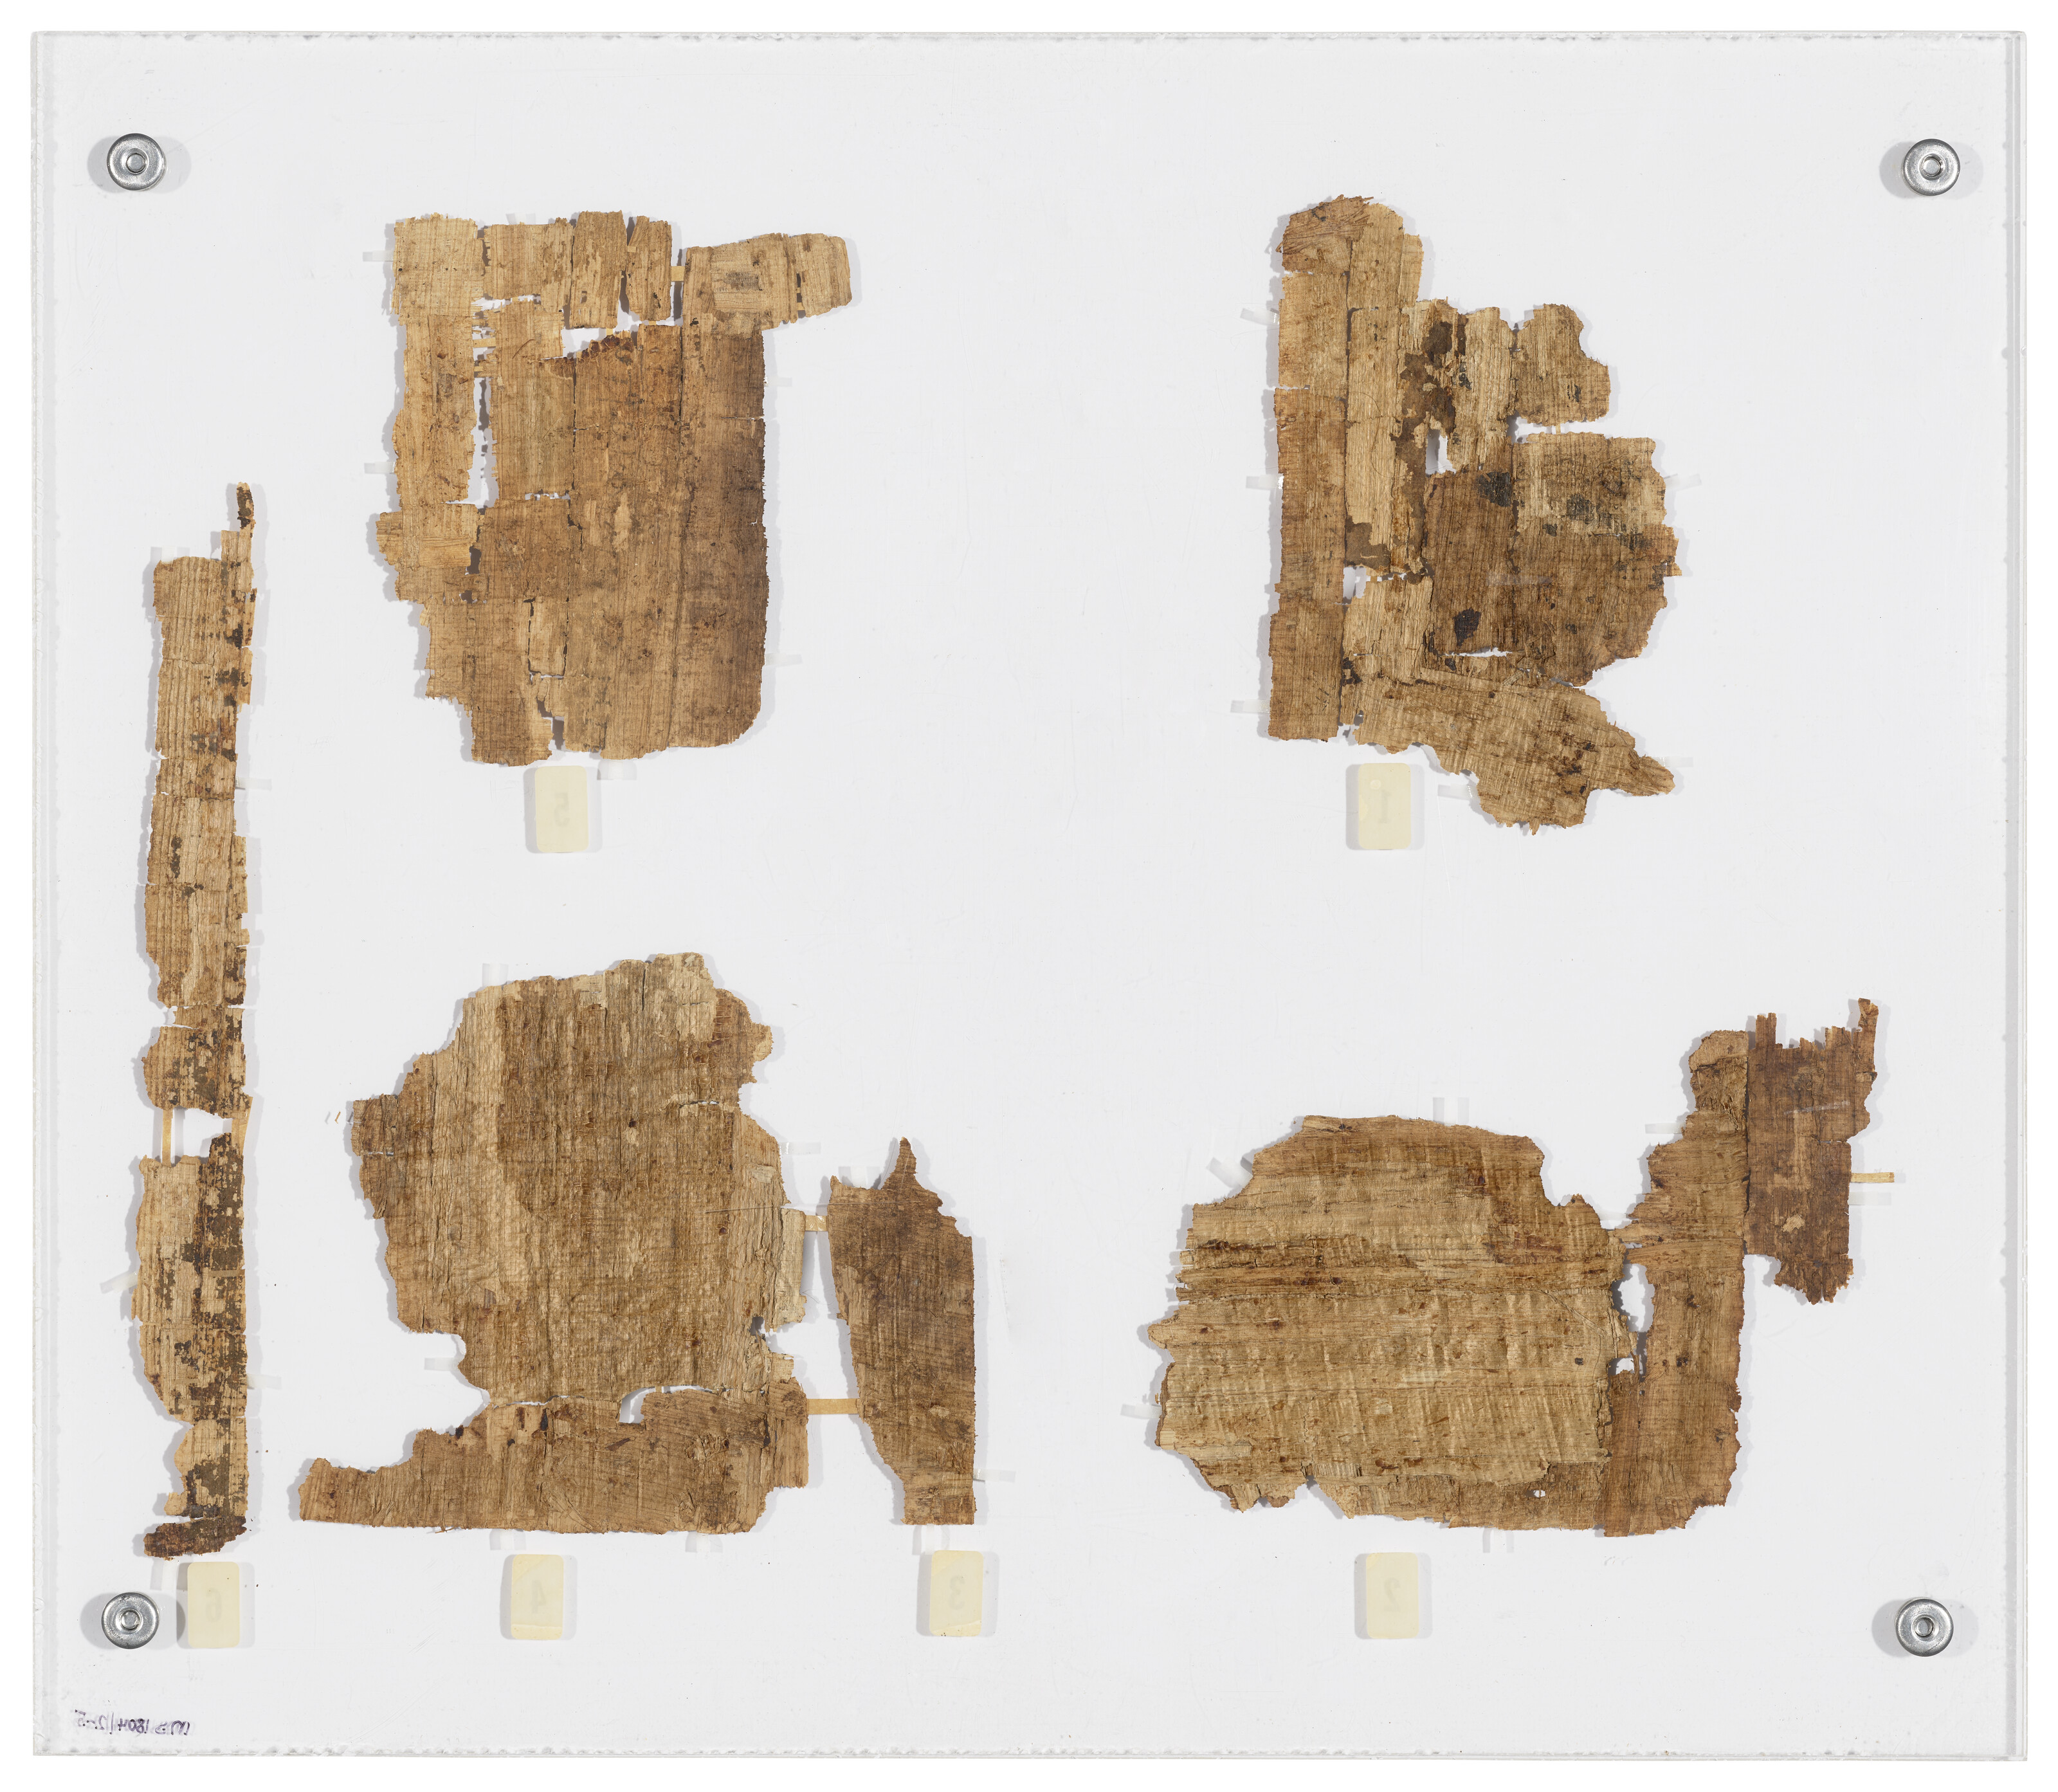 5
1
6
4
3
2
MS 1804/2-5